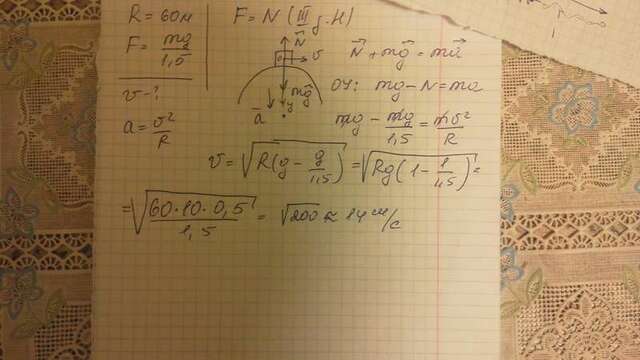 R = 60м
F = mg/1,5
v - ?
a = v²/R
F = N (III з. Н)
N
v
mg
y
a
N + mg = ma
OY: mg - N = ma
mg - mg/1,5 = mv²/R
v = √R(g - g/1,5) = √Rg(1 - 1/1,5) =
= √60·10·0,5/1,5 = √200 ≈ 14 м/с